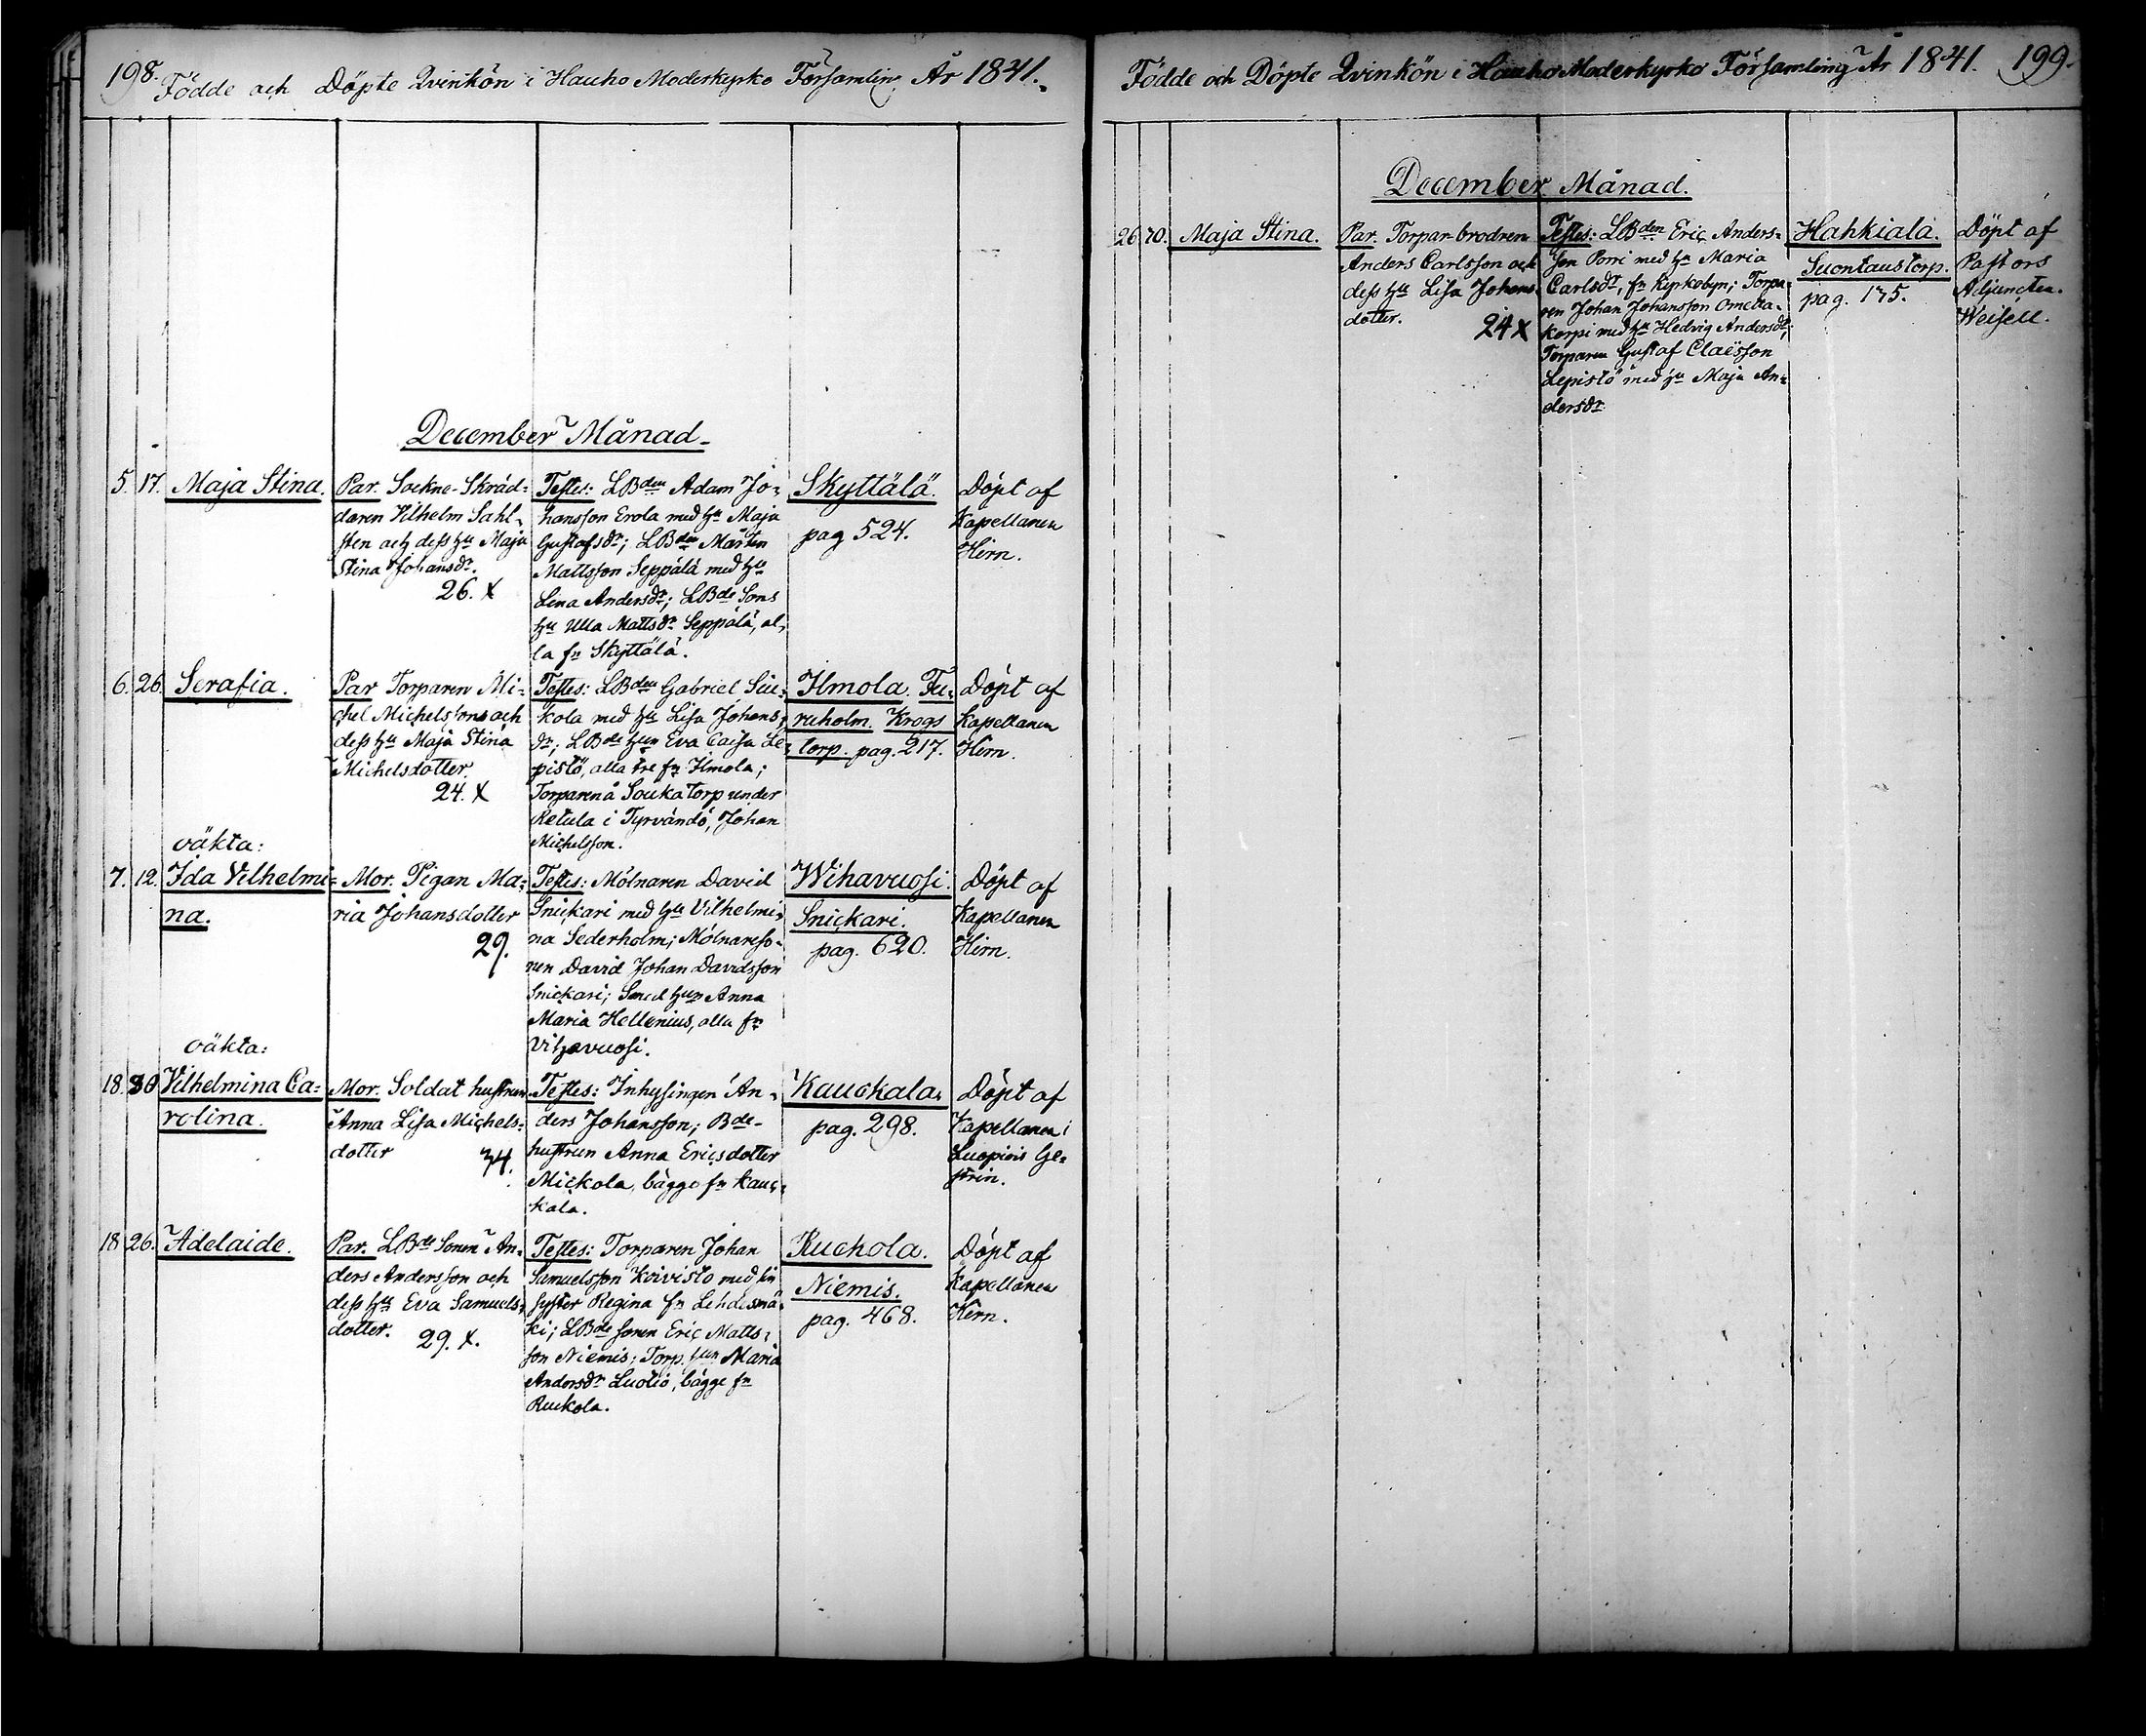 198. Födde och Döpte Qvinkön i Hauho Moderkyrko Församling År 1841.
December Månad.
5. 17. Maja Stina.
Par. Sockne-Skräd=
daren Vilhelm Sahl=
sten och dess hu Maja
Stina Johansdr.
26. X
Testes: LBden Adam Jo=
hansson Erola med hu Maja
Gustafsdr; LBden Mårten
Mattsson Seppälä med hu
Lena Andersdr; LBde Sons
hu Ulla Mattsdr Seppälä, al=
la fn Skyttälä.
Skyttälä.
pag 524.
Döpt af
Kapellanen
Hirn.
6. 26. Serafia.
Par Torparen Mi=
chel Michelsson och
dess hu Maja Stina
Michelsdotter.
24. X
Testes: LBden Gabriel Siu=
kola med hu Lisa Johans=
dr; LBde hun Eva Caisa Le=
pistö, alla tre fn Ilmola;
Torparen å Souka torp under
Retula i Tyrvändö, Johan
Michelsson.
Ilmola. Fu=
ruholm. Krogs
torp. pag. 217.
Döpt af
Kapellanen
Hirn.
oäkta:
7. 12. Ida Vilhelmi=
na.
Mor. Pigan Ma=
ria Johansdotter
29.
Testes: Mölnaren David
Snickari med hu Vilhelmi=
na Sederholm; Mölnareso=
nen David Johan Davidsson
Snickari; Smed hun Anna
Maria Hellenius, alla fn
Vihavuosi.
Wihavuosi.
Snickari.
pag. 620.
Döpt af
Kapellanen
Hirn.
oäkta:
18. 30 Vilhelmina Ca=
rolina.
Mor. Soldat hustrun
Anna Lisa Michels=
dotter
34.
Testes: Inhysingen An=
ders Johansson; Bde-
hustrun Anna Ericsdotter
Mickola, bägge fn Kauc=
kala.
Kauckala.
pag. 298.
Döpt af
Kapellanen i
Luopiois Ge=
strin.
18. 26. Adelaide.
Par. LBde Sonen An=
ders Andersson och
dess hu Eva Samuels=
dotter.
29. X.
Testes: Torparen Johan
Samuelsson Koivisto med sin
syster Regina fn Lehdesmä=
ki; LBde sonen Eric Matts=
son Niemis; Torp. hun Maria
Andersdr Luotio, bägge fn
Ruckola.
Ruckola.
Niemis.
pag. 468.
Döpt af
Kapellanen
Hirn.
Födde och Döpte Qvinkön i Hauho Moderkyrko Församling År 1841. 199.
December Månad.
26. 30. Maja Stina.
Par. Torpar-brodren
Anders Carlsson och
dess hu Lisa Johans=
dotter.
24 X
Testes: LBden Eric Anders=
son Porri med hu Maria
Carlsdr, fn Kyrkobyn; Torpa=
ren Johan Johansson
korpi med hu Hedvig Andersdr;
Torparen Gustaf Claësson
Lepistö med hu Maja An=
dersdr
Hahkiala.
Suontaustorp.
pag. 175.
Döpt af
Pastors
Adjuncten.
Weisell.